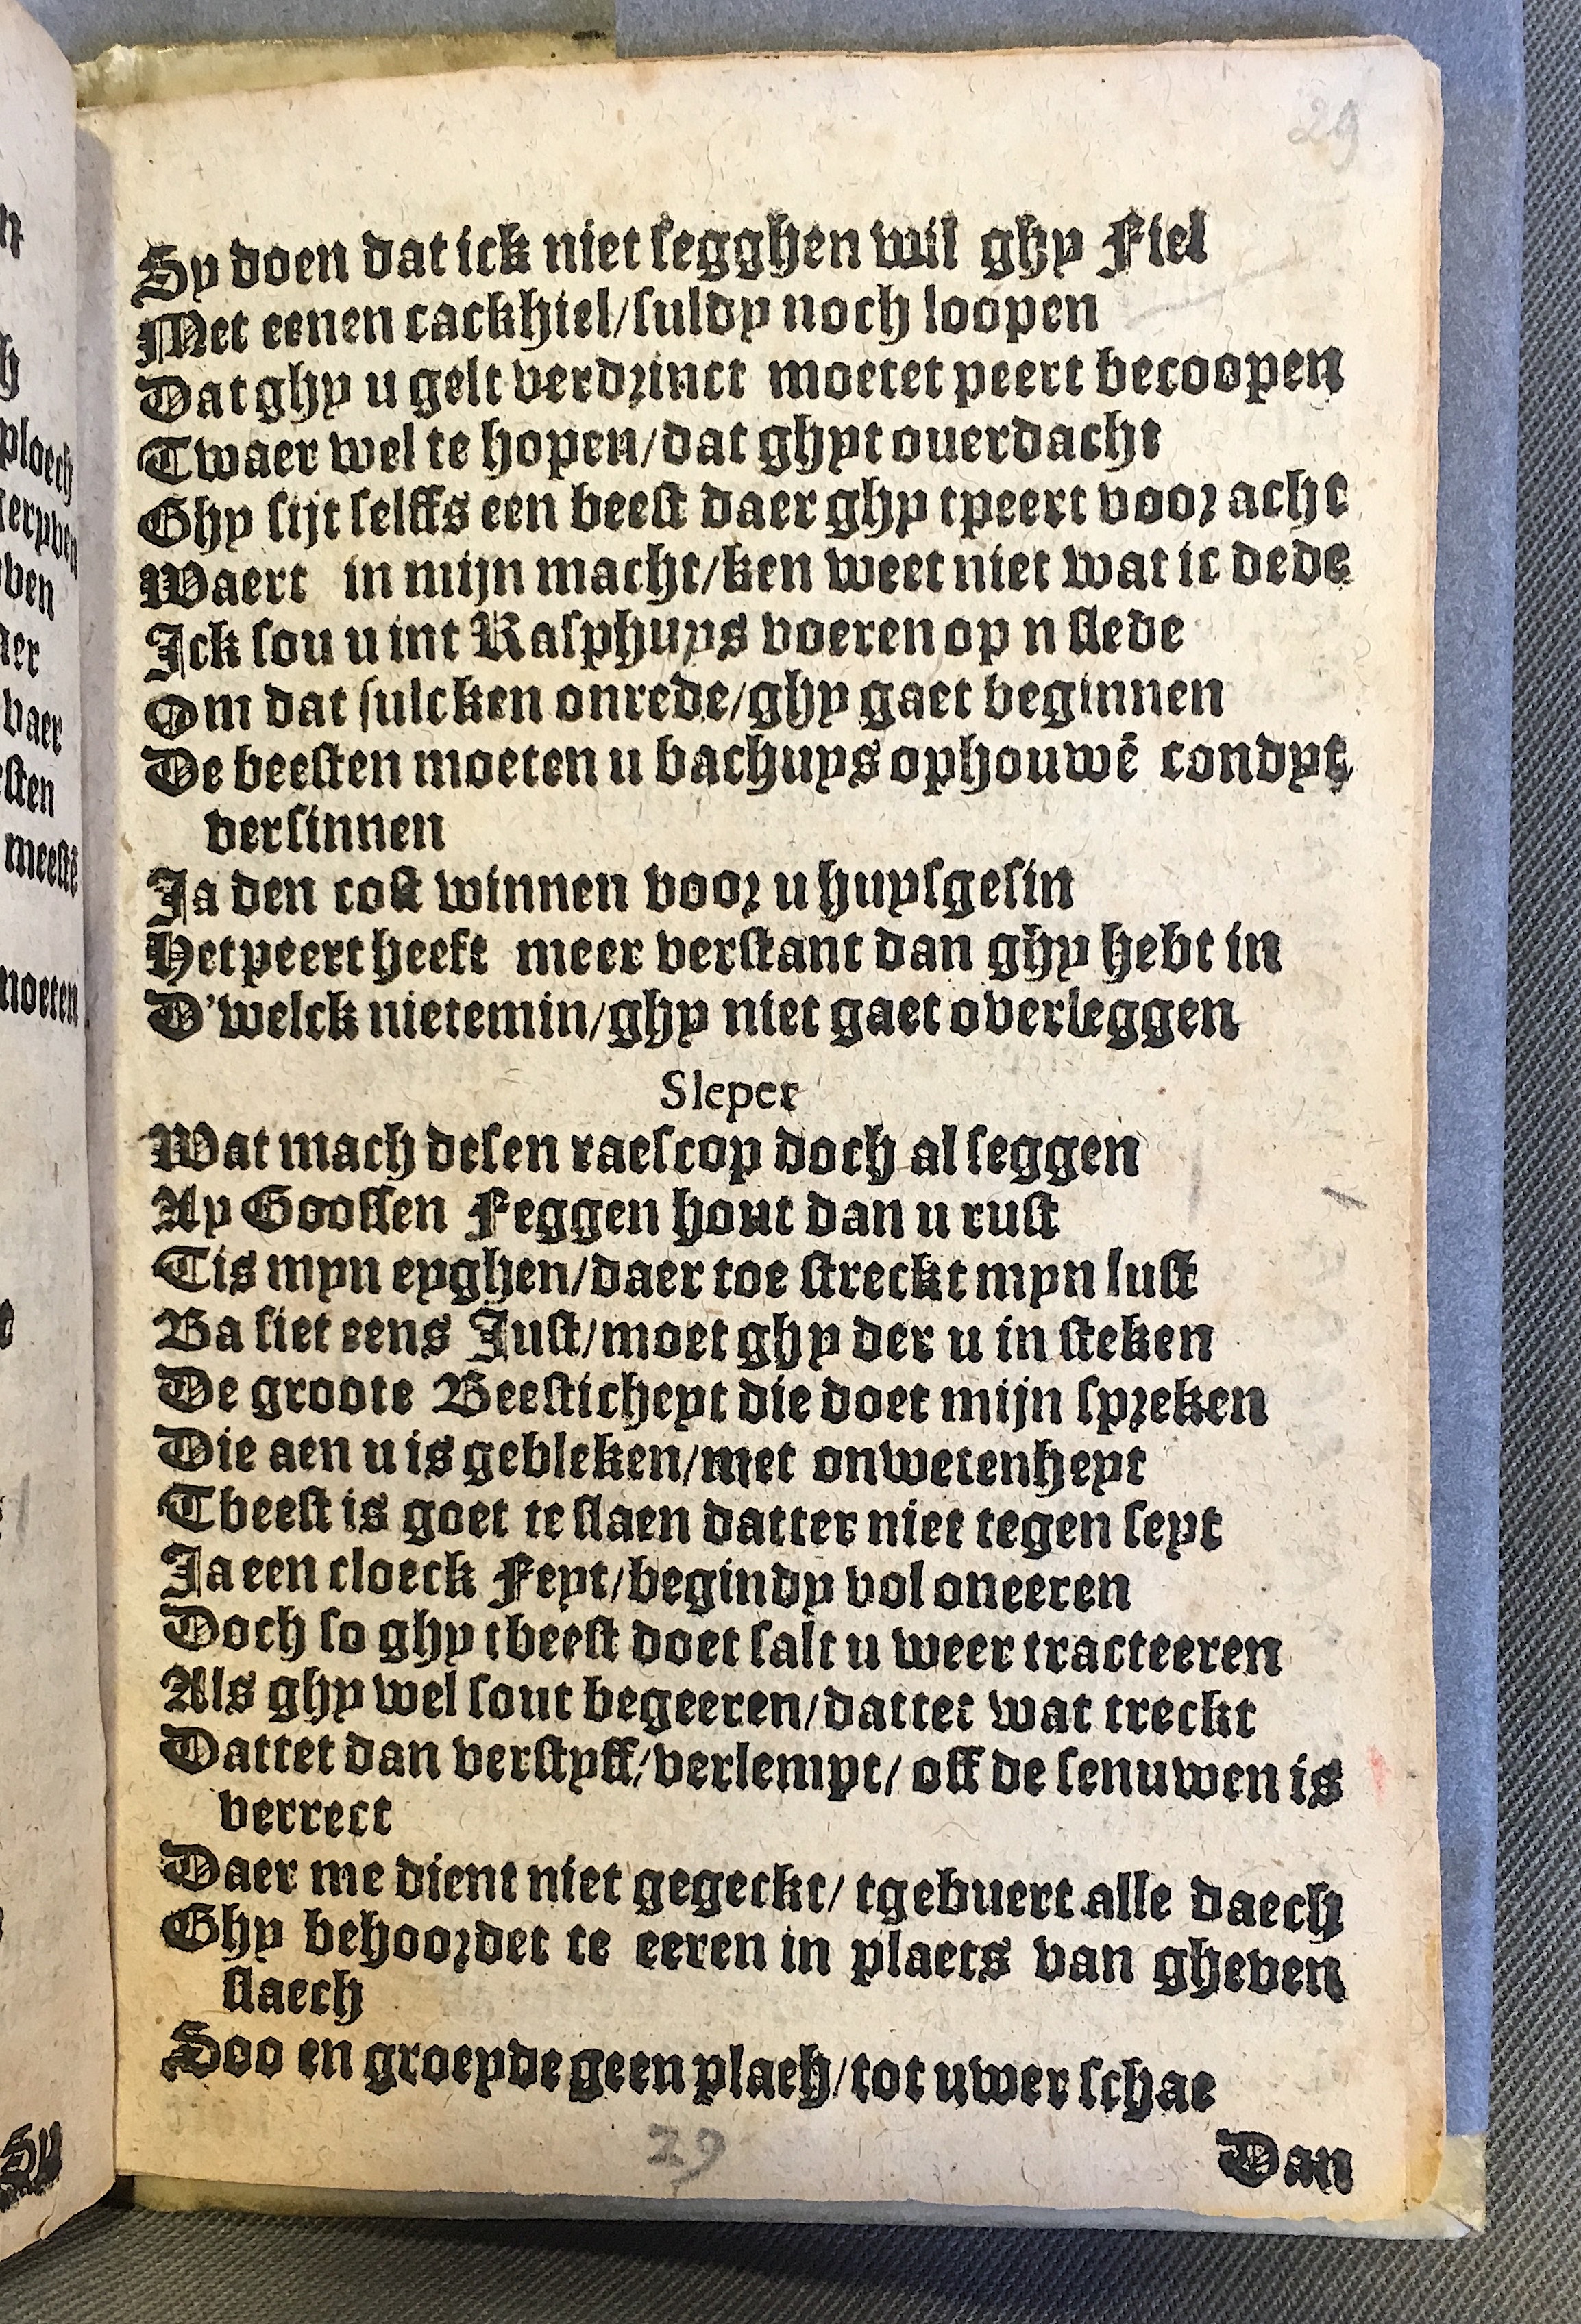 29
Sy doen dat ick niet segghen wil ghy Fiel
Met eenen cackhiel/suldy noch loopen
Dat ghy u gelt verdrinct moetet peert becoopen
Twaer wel te hopen/dat ghyt ouerdacht
Ghy sijt selffs een beest daer ghy tpeert voor acht
Waert in mijn macht/ken weet niet wat ic dede
Ick sou u int Rasphuys voeren op n slede
Om dat sulcken onrede/ghy gaet beginnen
De beesten moeten u bachuys ophouwē condyt
versinnen
Ja den cost winnen voor u huysgesin
Het peert heeft meer verstant dan ghy hebt in
D'welck nietemin/ghy niet gaet overleggen
Sleper
Wat mach desen raescop doch al seggen
Ay Goossen Feggen hout dan u rust
Tis myn eyghen/daer toe streckt myn lust
Ba siet eens Just/moet ghy der u in steken
De groote Beesticheyt die doet mijn spreken
Die aen u is gebleken/met onwetenheyt
Tbeest is goet te slaen datter niet tegen seyt
Ja een cloeck Feyt/begindy vol oneeren
Doch so ghy tbeest doet salt u weer tracteeren
Als ghy wel sout begeeren/dattet wat treckt
Dattet dan verstyff/verlempt/ off de senuwen is
verrect
Daer me dient niet gegeckt/ tgebuert alle daech
Ghy behoordet te eeren in plaets van gheven
slaech
Soo en groeyde geen plaeh/tot uwer schae
29
Dan
n
h
ploech
ven
der
vaer
sten
meestē
moeten
Sy